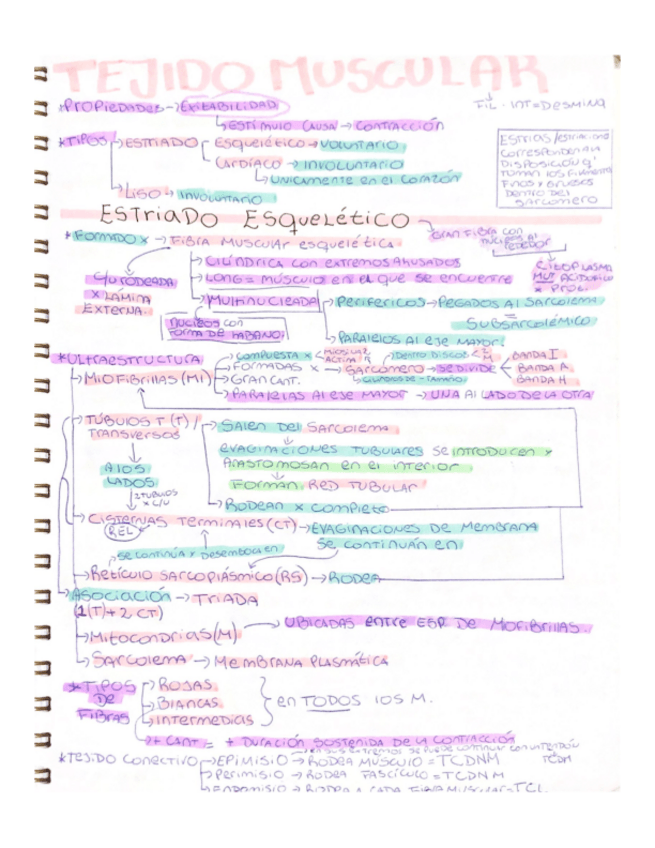 TEJIDO MUSCULAR
*PROPIEDADES → EXITABILIDAD
FIL. INT = DESMINA
ESTÍMULO CAUSA → CONTRACCIÓN
*TIPOS → ESTRIADO
Esquelético → VOLUNTARIO
CARDÍACO → INVOLUNTARIO
ÚNICAMENTE en el CORAZÓN
LISO → INVOLUNTARIO
ESTRIAS/
CORRESPONDE A LA
DISPOSICIÓN q'
TOMAN LOS FILAMENTOS
FINOS Y GRUESOS
DENTRO DEL
SARCOMERO
ESTRIADO ESQUELÉTICO
GRAN FIBRA CON
NUCLEOS AL
REDEDOR
CITOPLASMA
MUY ACIDOFILO
X PROT.
*FORMADO X → FIBRA MUSCULAR esquelética
CILÍNDRICA con extremos AHUSADOS
LONG = MÚSCULO en el que se encuentre
MULTINUCLEADA
C/U RODEADA
X LAMINA
EXTERNA.
NUCLEOS con
FORMA DE HABANO.
PERIFÉRICOS → PEGADOS Al SARCOLEMA
SUBSARCOLÉMICO.
PARALELOS Al eje MAYOR.
*ULTRAESTRUCTURA
MIOFIBRILLAS (MI)
COMPUESTA X
ACTINA
FORMADAS X → SARCOMERO → SE DIVIDE
DENTRO DISCOS
BANDA I
BANDA A
BANDA H
GRAN CANT.
PARALELAS Al eje MAYOR → UNA Al LADO DE LA OTRA
TÚBULOS T (T) /
TRANSVERSOS
SALEN DEL SARCOLEMA
evAGINACIONES TUBULARES SE INTRODUCEN Y
ANASTOMOSAN en el INTERIOR
FORMAN RED TUBULAR
RODEAN X COMPLETO
A LOS
LADOS
2 TUBULOS
X C/U
CISTERNAS TERMINALES (CT) → EVAGINACIONES DE MEMBRANA
(REL)
SE CONTINUAN en
SE CONTINÚA Y DESEMBOCA en
Retículo SARCOPLÁSMICO (RS) → RODEA
ASOCIACIÓN → TRIADA
(1(T) + 2 CT)
MITOCONDRIAS (M) → UBICADAS entre ESP. DE MIOFIBRILLAS.
SARCOLEMA → MEMBRANA PLASMÁTICA
*TIPOS
DE
FIBRAS
ROJAS
BLANCAS
INTERMEDIAS
en TODOS los M.
+ CANT = + DURACIÓN SOSTENIDA DE LA CONTRACCIÓN
*TEJIDO CONECTIVO → EPIMISIO → RODEA MÚSCULO = TCDNM
TCDM
PERIMISIO → RODEA FASCÍCULO = TCDNM
ENDOMISIO → RODEA A CADA FIBRA MUSCULAR = TCL